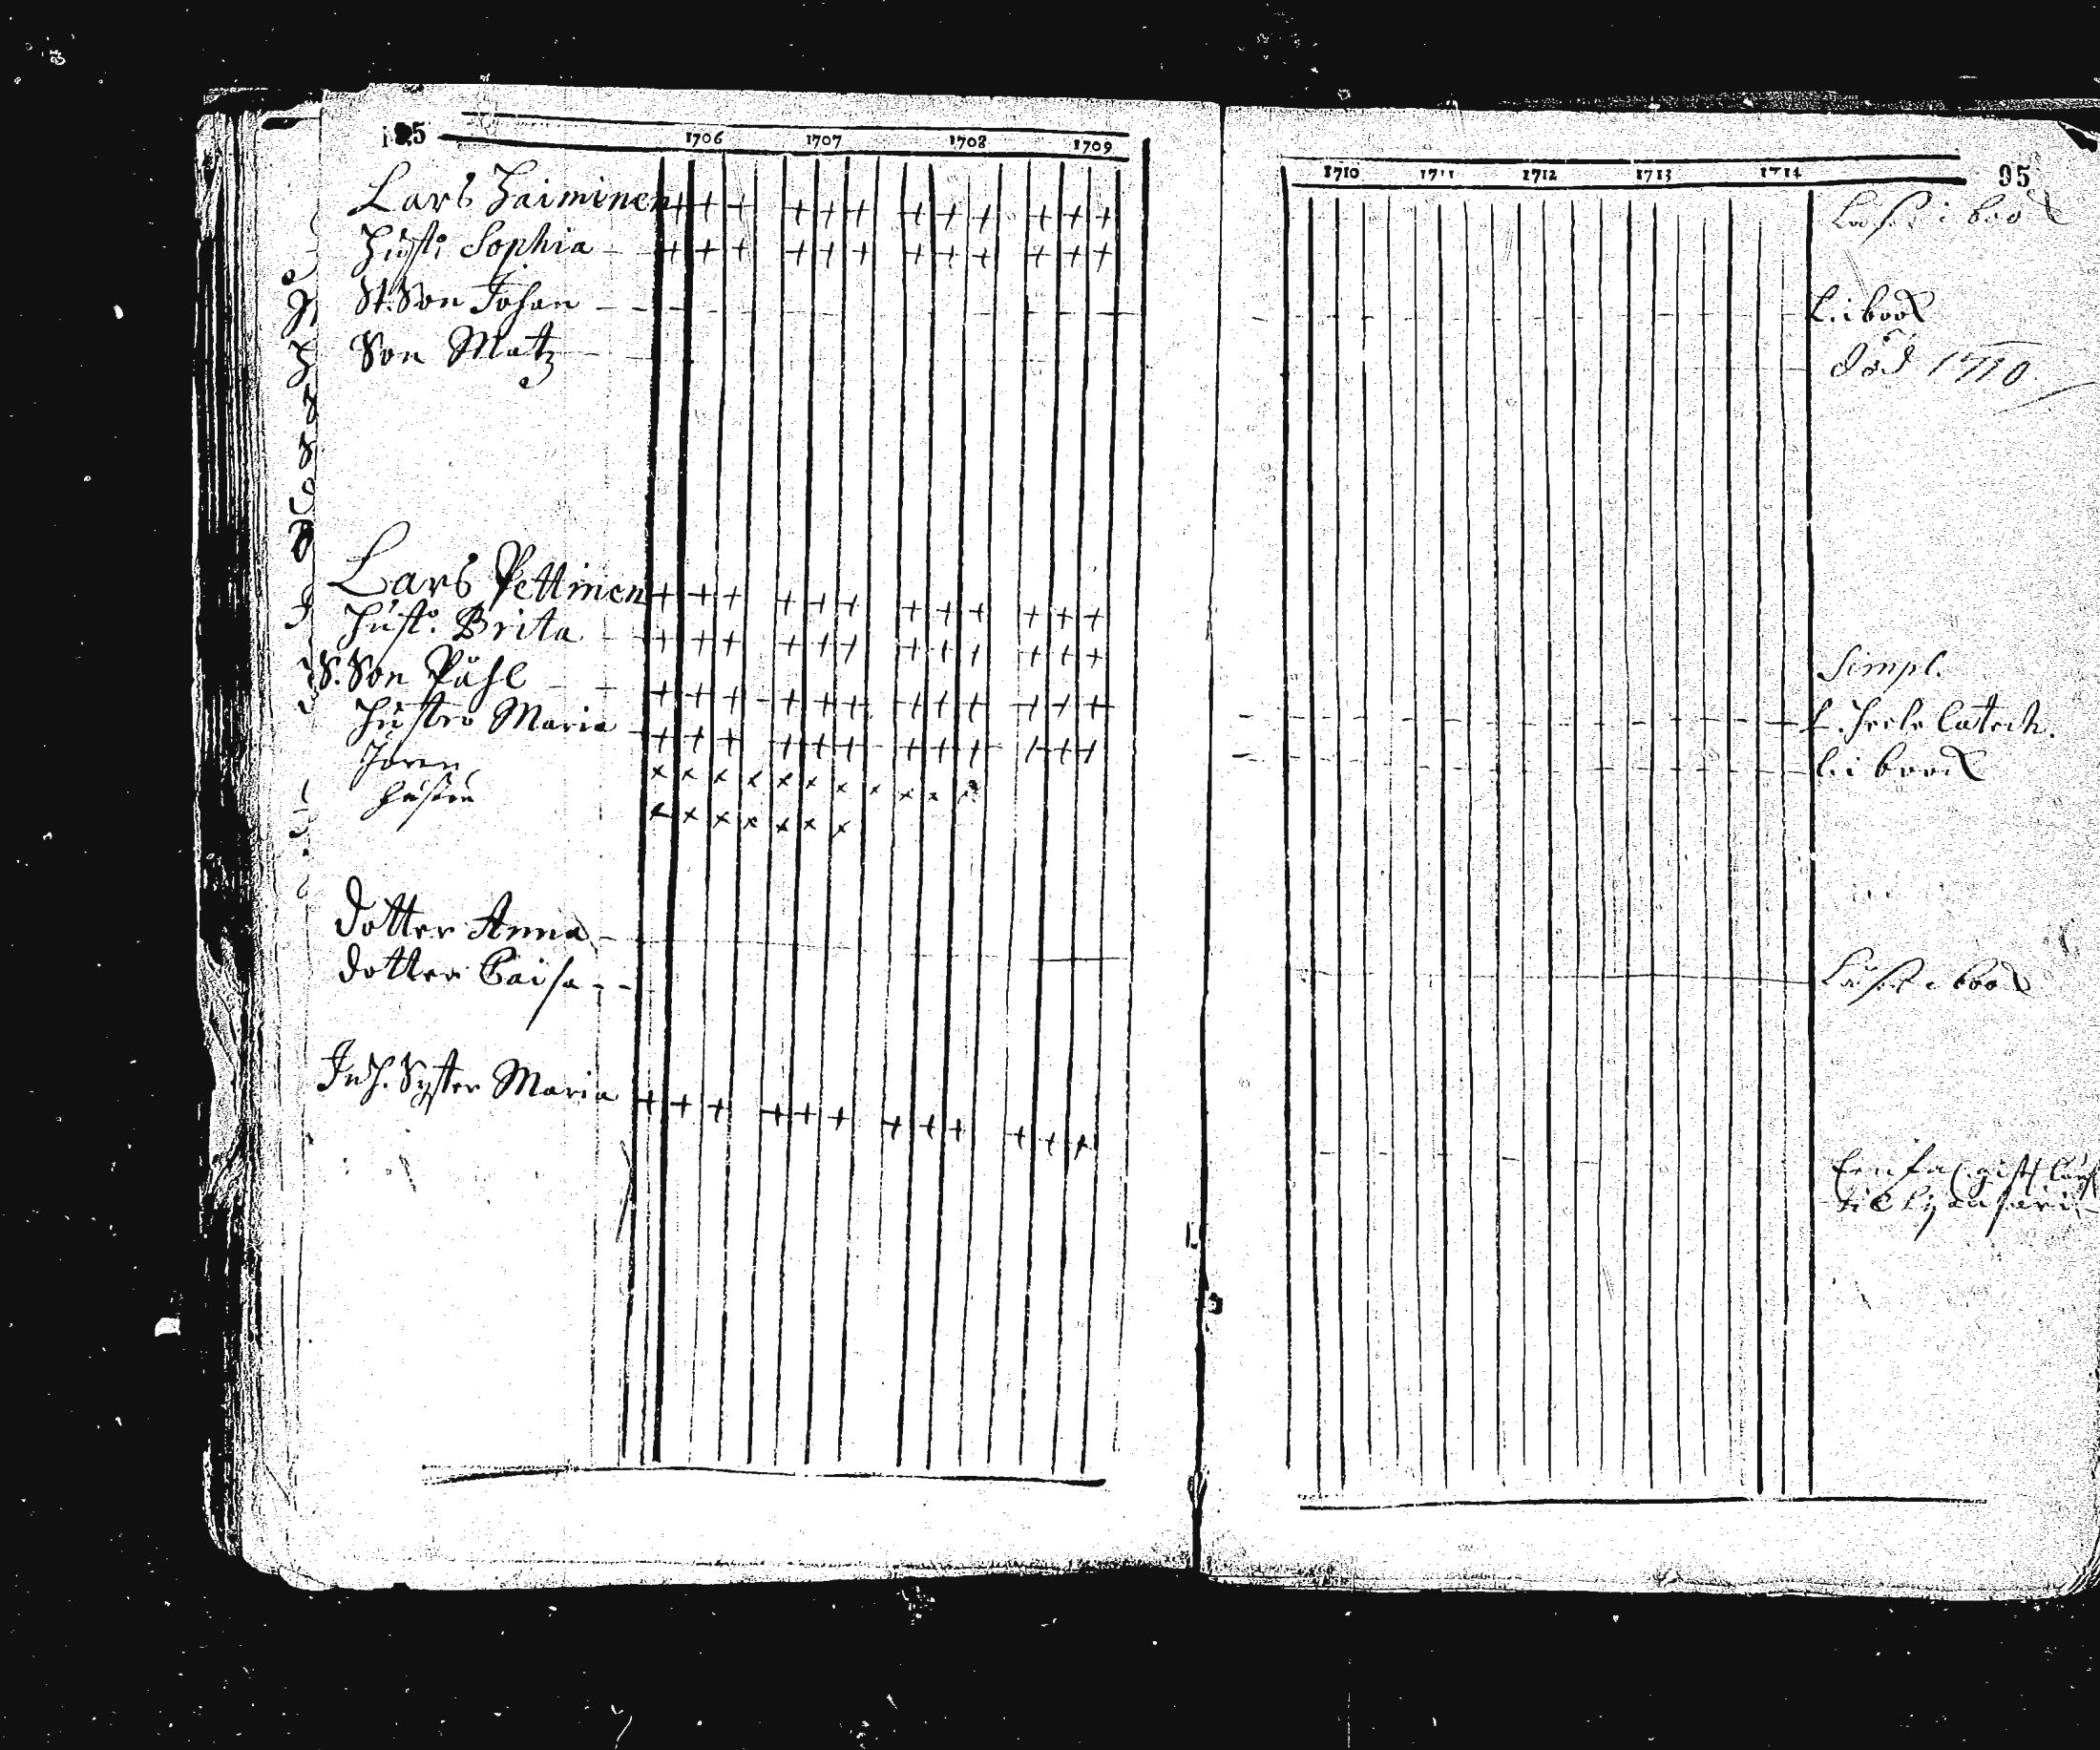 1706 1707 1708 1709
Lars Haiminen
Hust: Sophia
St. Son Johan
Son Matz
Lars Pettinen
Hust: Brita
S. Son Påhl
Hustro Maria
Jören
Hustru
Dotter Anna
Dotter Caisa
Inh. Syster Maria
1710 1711 1712 1713 1714 95
Läser i book
L. i book
död 1710
Simpl.
L. heele Catech.
L. i book
Läser i book